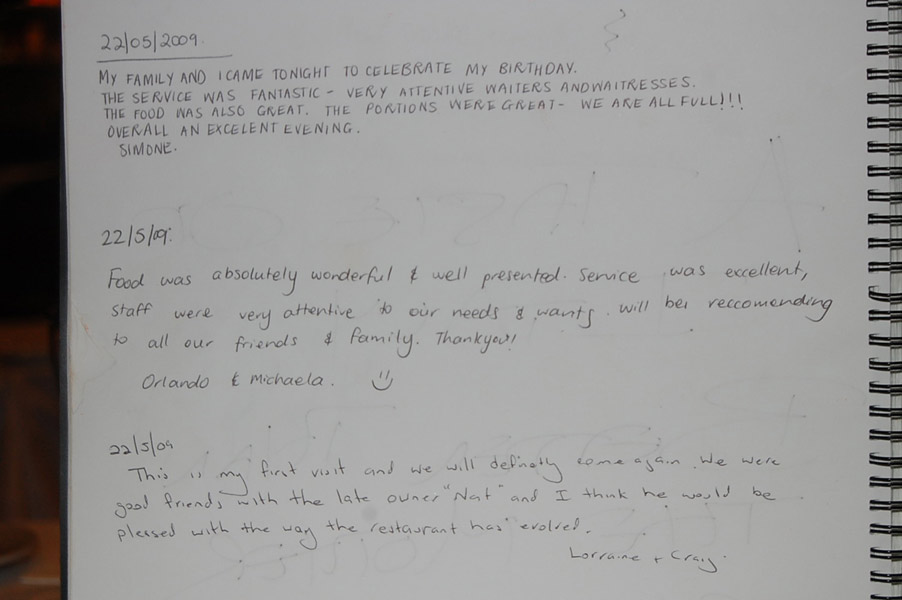 22/05/2009.
MY FAMILY AND I CAME TONIGHT TO CELEBRATE MY BIRTHDAY.
THE SERVICE WAS FANTASTIC - VERY ATTENTIVE WAITERS AND WAITRESSES.
THE FOOD WAS ALSO GREAT. THE PORTIONS WERE GREAT - WE ARE ALL FULL!!!
OVERALL AN EXCELENT EVENING.
SIMONE.
22/5/09.
Food was absolutely wonderful & well presented. Service was excellent,
staff were very attentive to our needs & wants. will bei reccomending
to all our friends & family. Thankyou!
Orlando & Michaela.
22/5/09
This is my first visit and we will definetly come again. We were
good friends with the late owner "Nat" and I think he would be
pleased with the way the restaurant has evolved.
Lorraine + Craig.